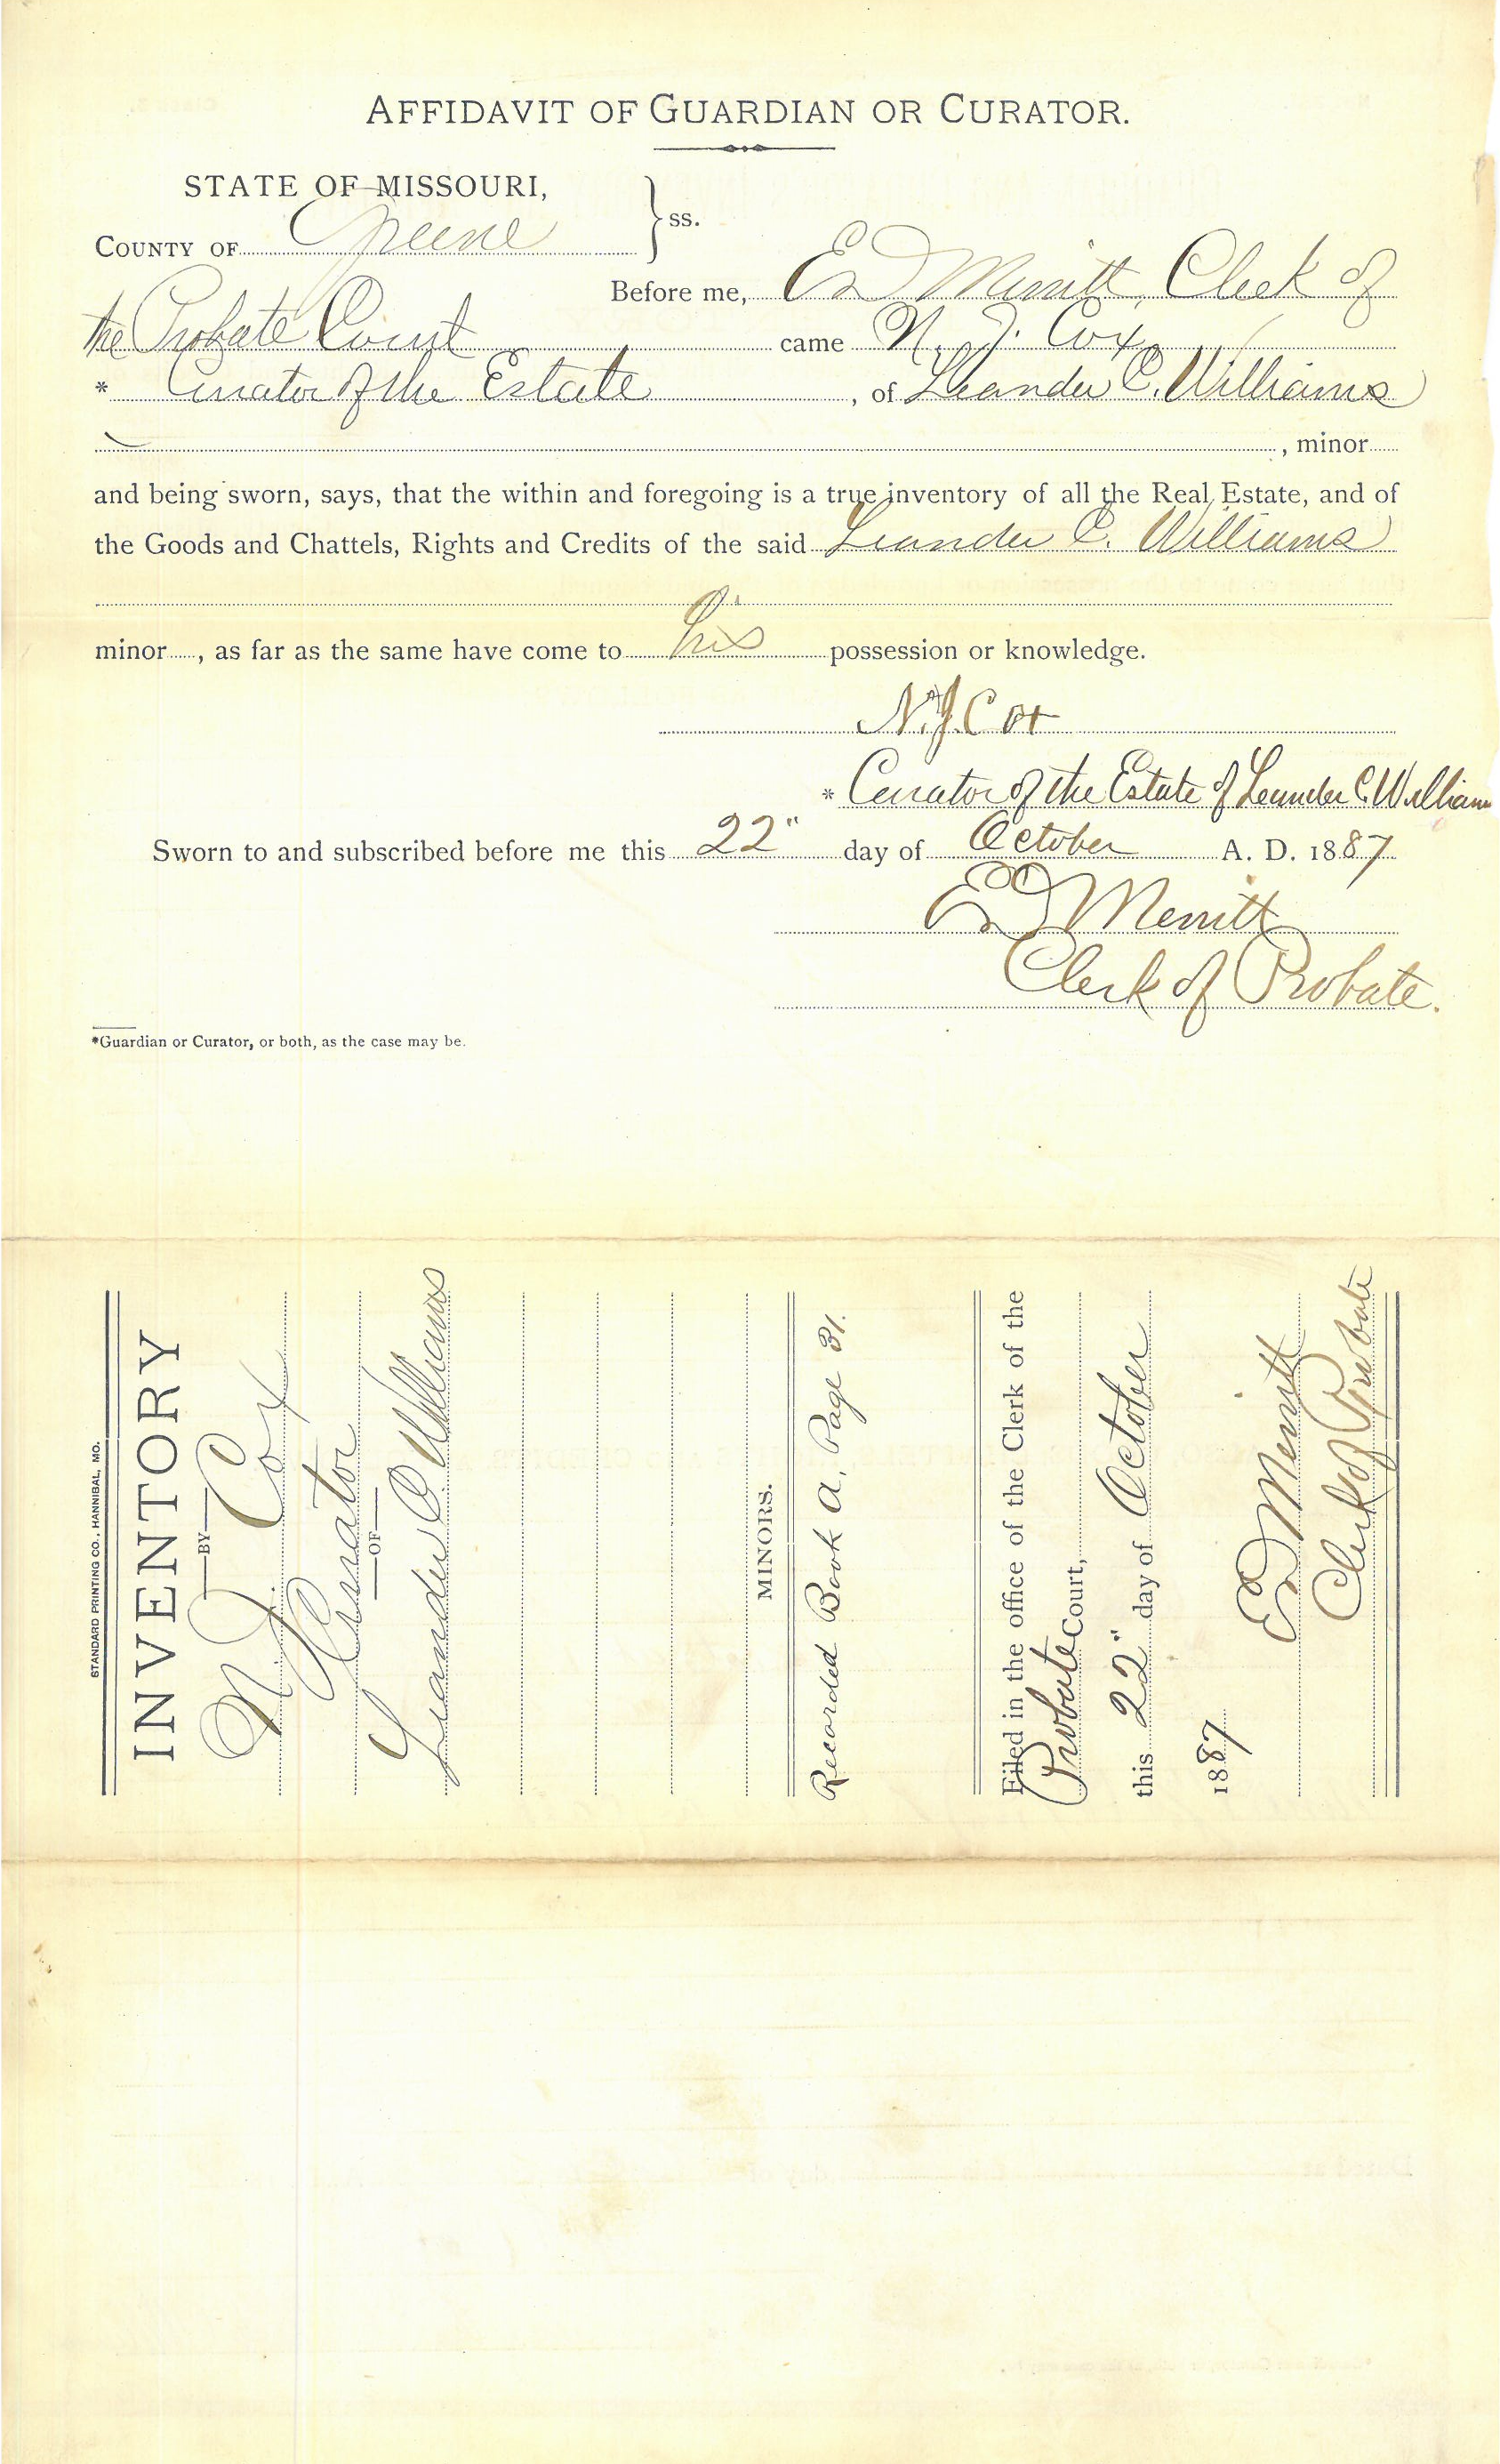 AFFIDAVIT OF GUARDIAN OR CURATOR.
STATE OF MISSOURI,
COUNTY OF Greene } ss.
Before me, Ed Merritt, Clerk of
the Probate Court came N. J. Cox
* Curator of the Estate, of Leander C. Williams
, minor
and being sworn, says, that the within and foregoing is a true inventory of all the Real Estate, and of
the Goods and Chattels, Rights and Credits of the said Leander C. Williams
minor, as far as the same have come to his possession or knowledge.
N. J. Cox
* Curator of the Estate of Leander C. William
Sworn to and subscribed before me this 22" day of October A. D. 1887
Ed Merritt
Clerk of Probate.
*Guardian or Curator, or both, as the case may be.
STANDARD PRINTING CO., HANNIBAL, MO.
INVENTORY
—BY—
N. J. Cox
Curator
—OF—
Leander C. Williams
MINORS.
Recorded Book A, Page 31.
Filed in the office of the Clerk of the
Probate Court,
this 22" day of October
1887
Ed Merritt
Clerk of Probate